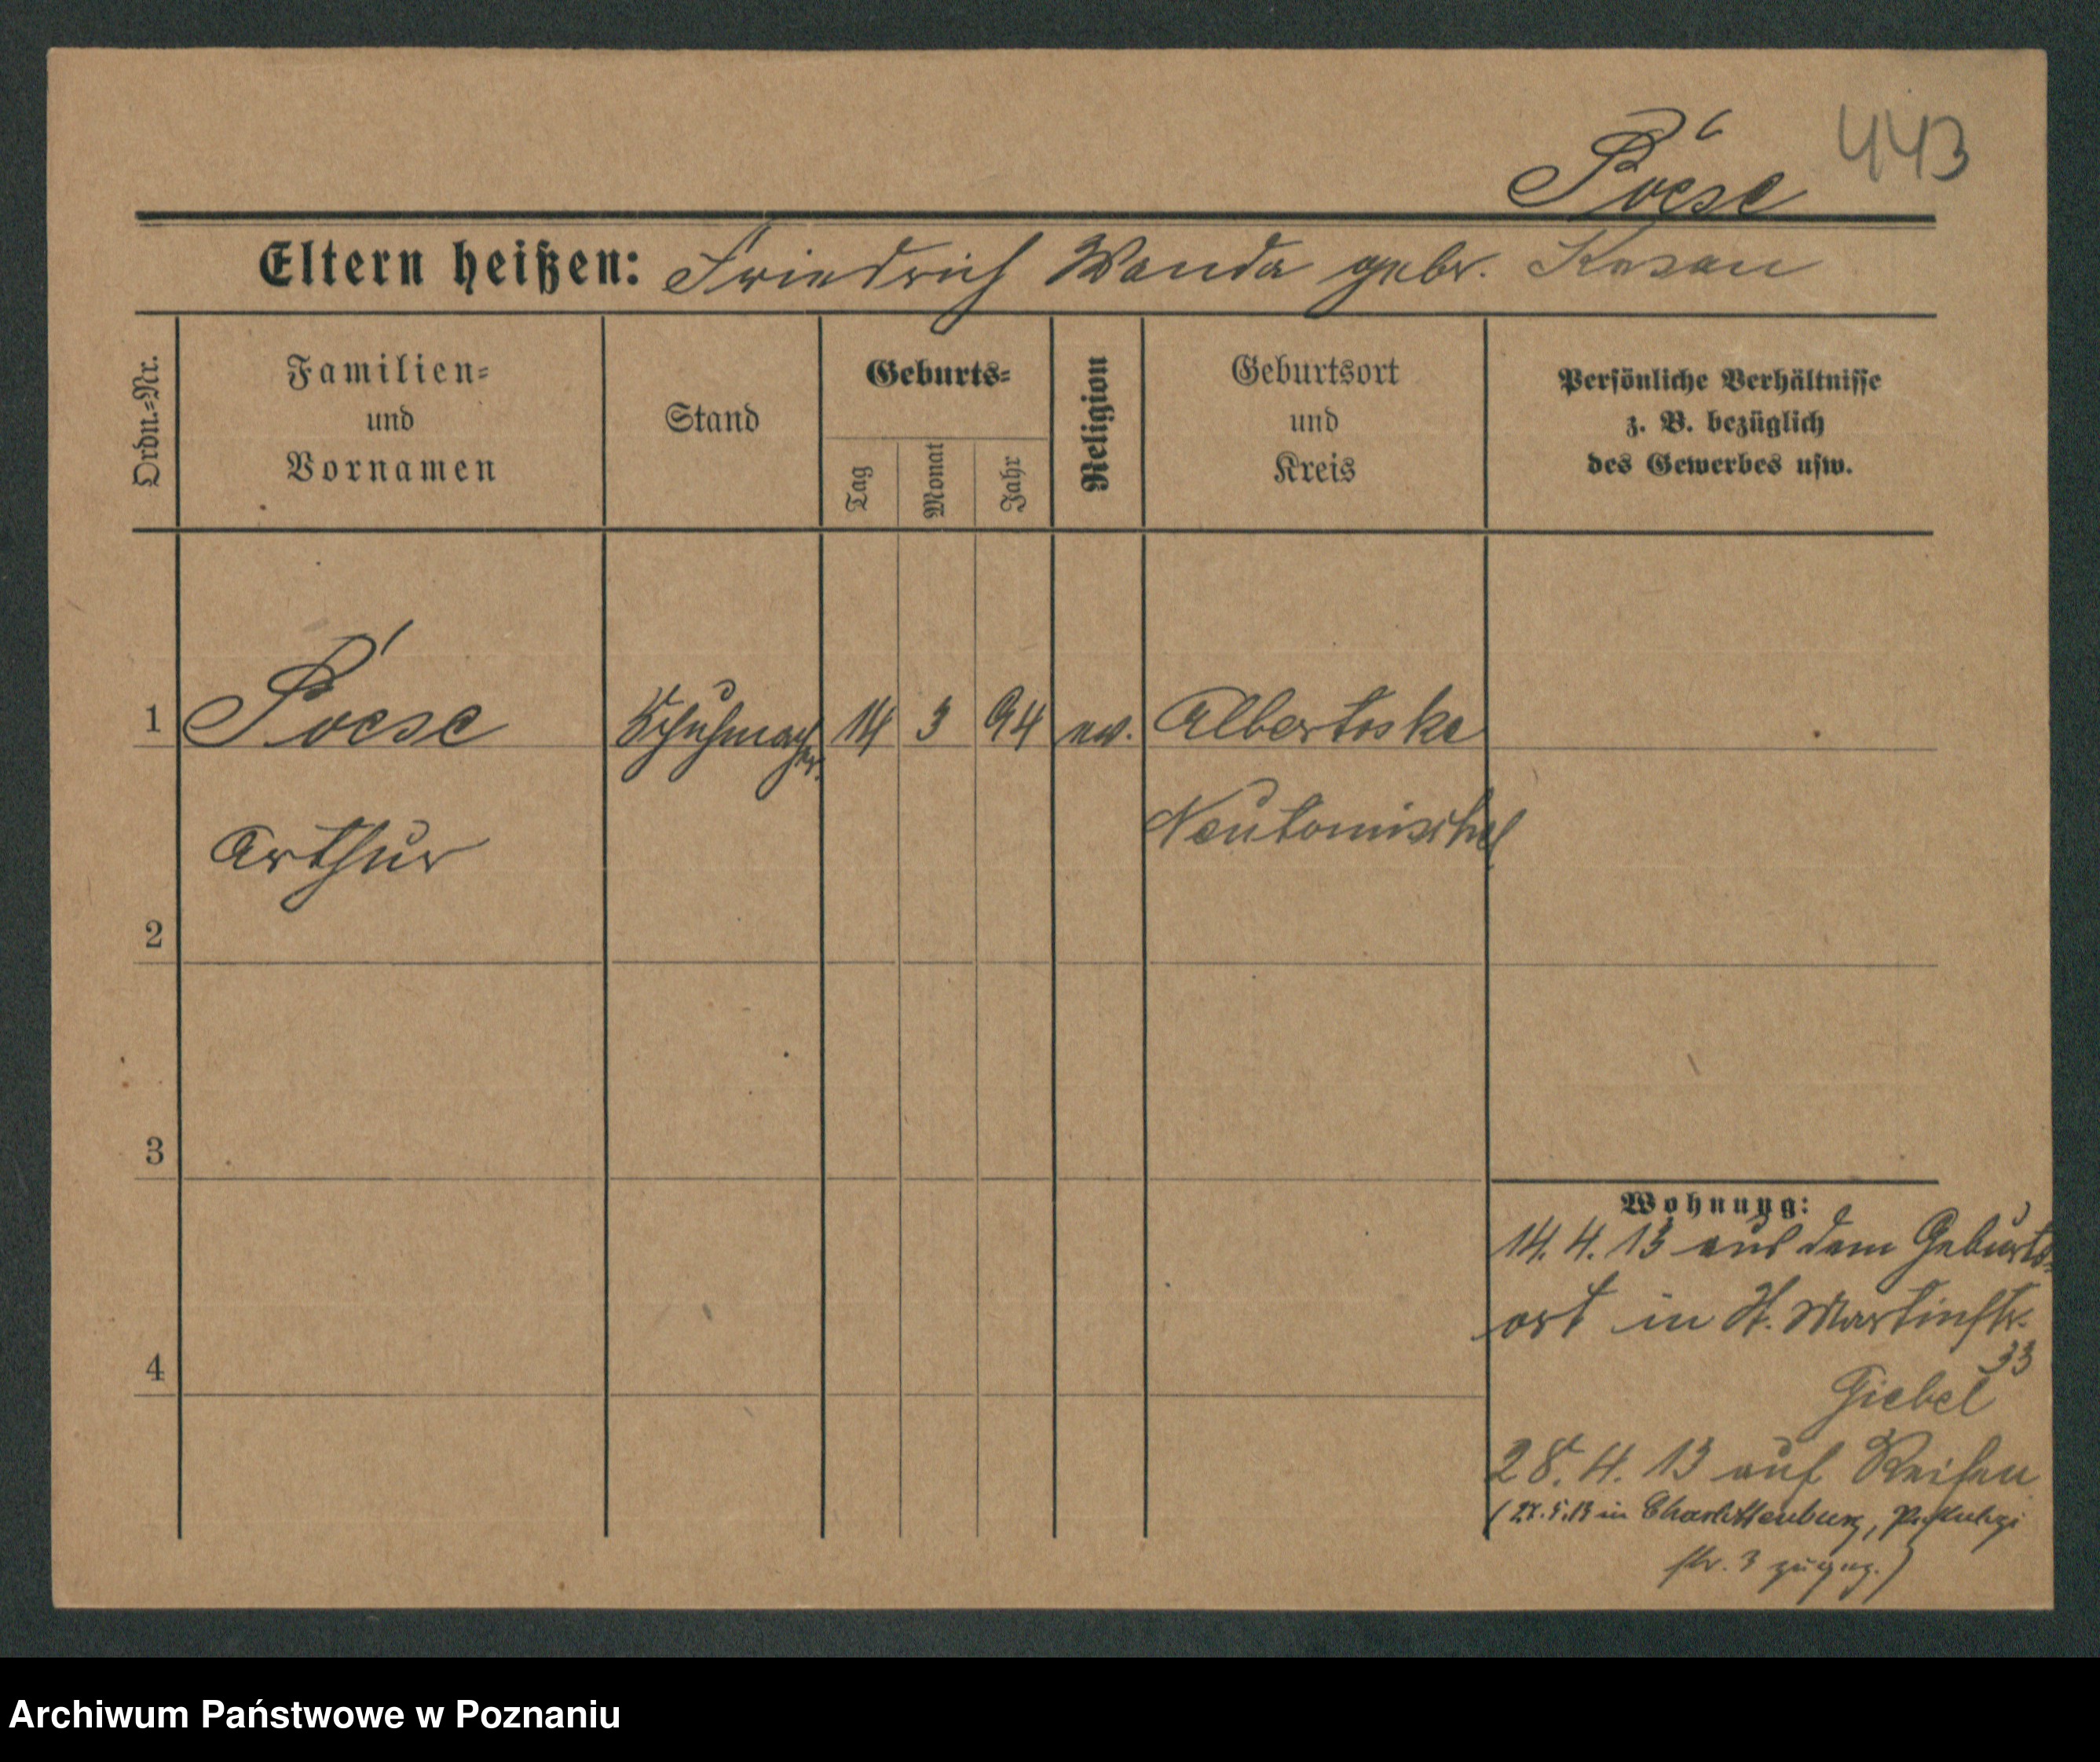 443
Poese
Eltern heißen: Friedrich Wanda gebr. Kosan
Ordn.=Nr.
Familien=
und
Vornamen
Stand
Geburts=
Tag
Monat
Jahr
Religion
Geburtsort
und
Kreis
Persönliche Verhältnisse
z. B. bezüglich
des Gewerbes usw.
1 Poese Schuhmacher. 14 3 94 ev. Albertoske
Arthur Neutomischel
2
3
4
Wohnung:
14. 4. 13 aus dem Geburts-
ort in St. Martinstr.
33
Giebel
28. 4. 13 auf Reisen
in Charlottenburg,
str. 3 zugez.)
Archiwum Państwowe w Poznaniu